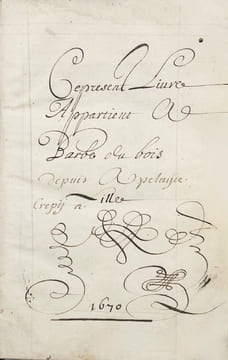 Ce present Liure
Appartient A
Barbe du bois
depuis A pelagie
Crepÿ a lille
1670